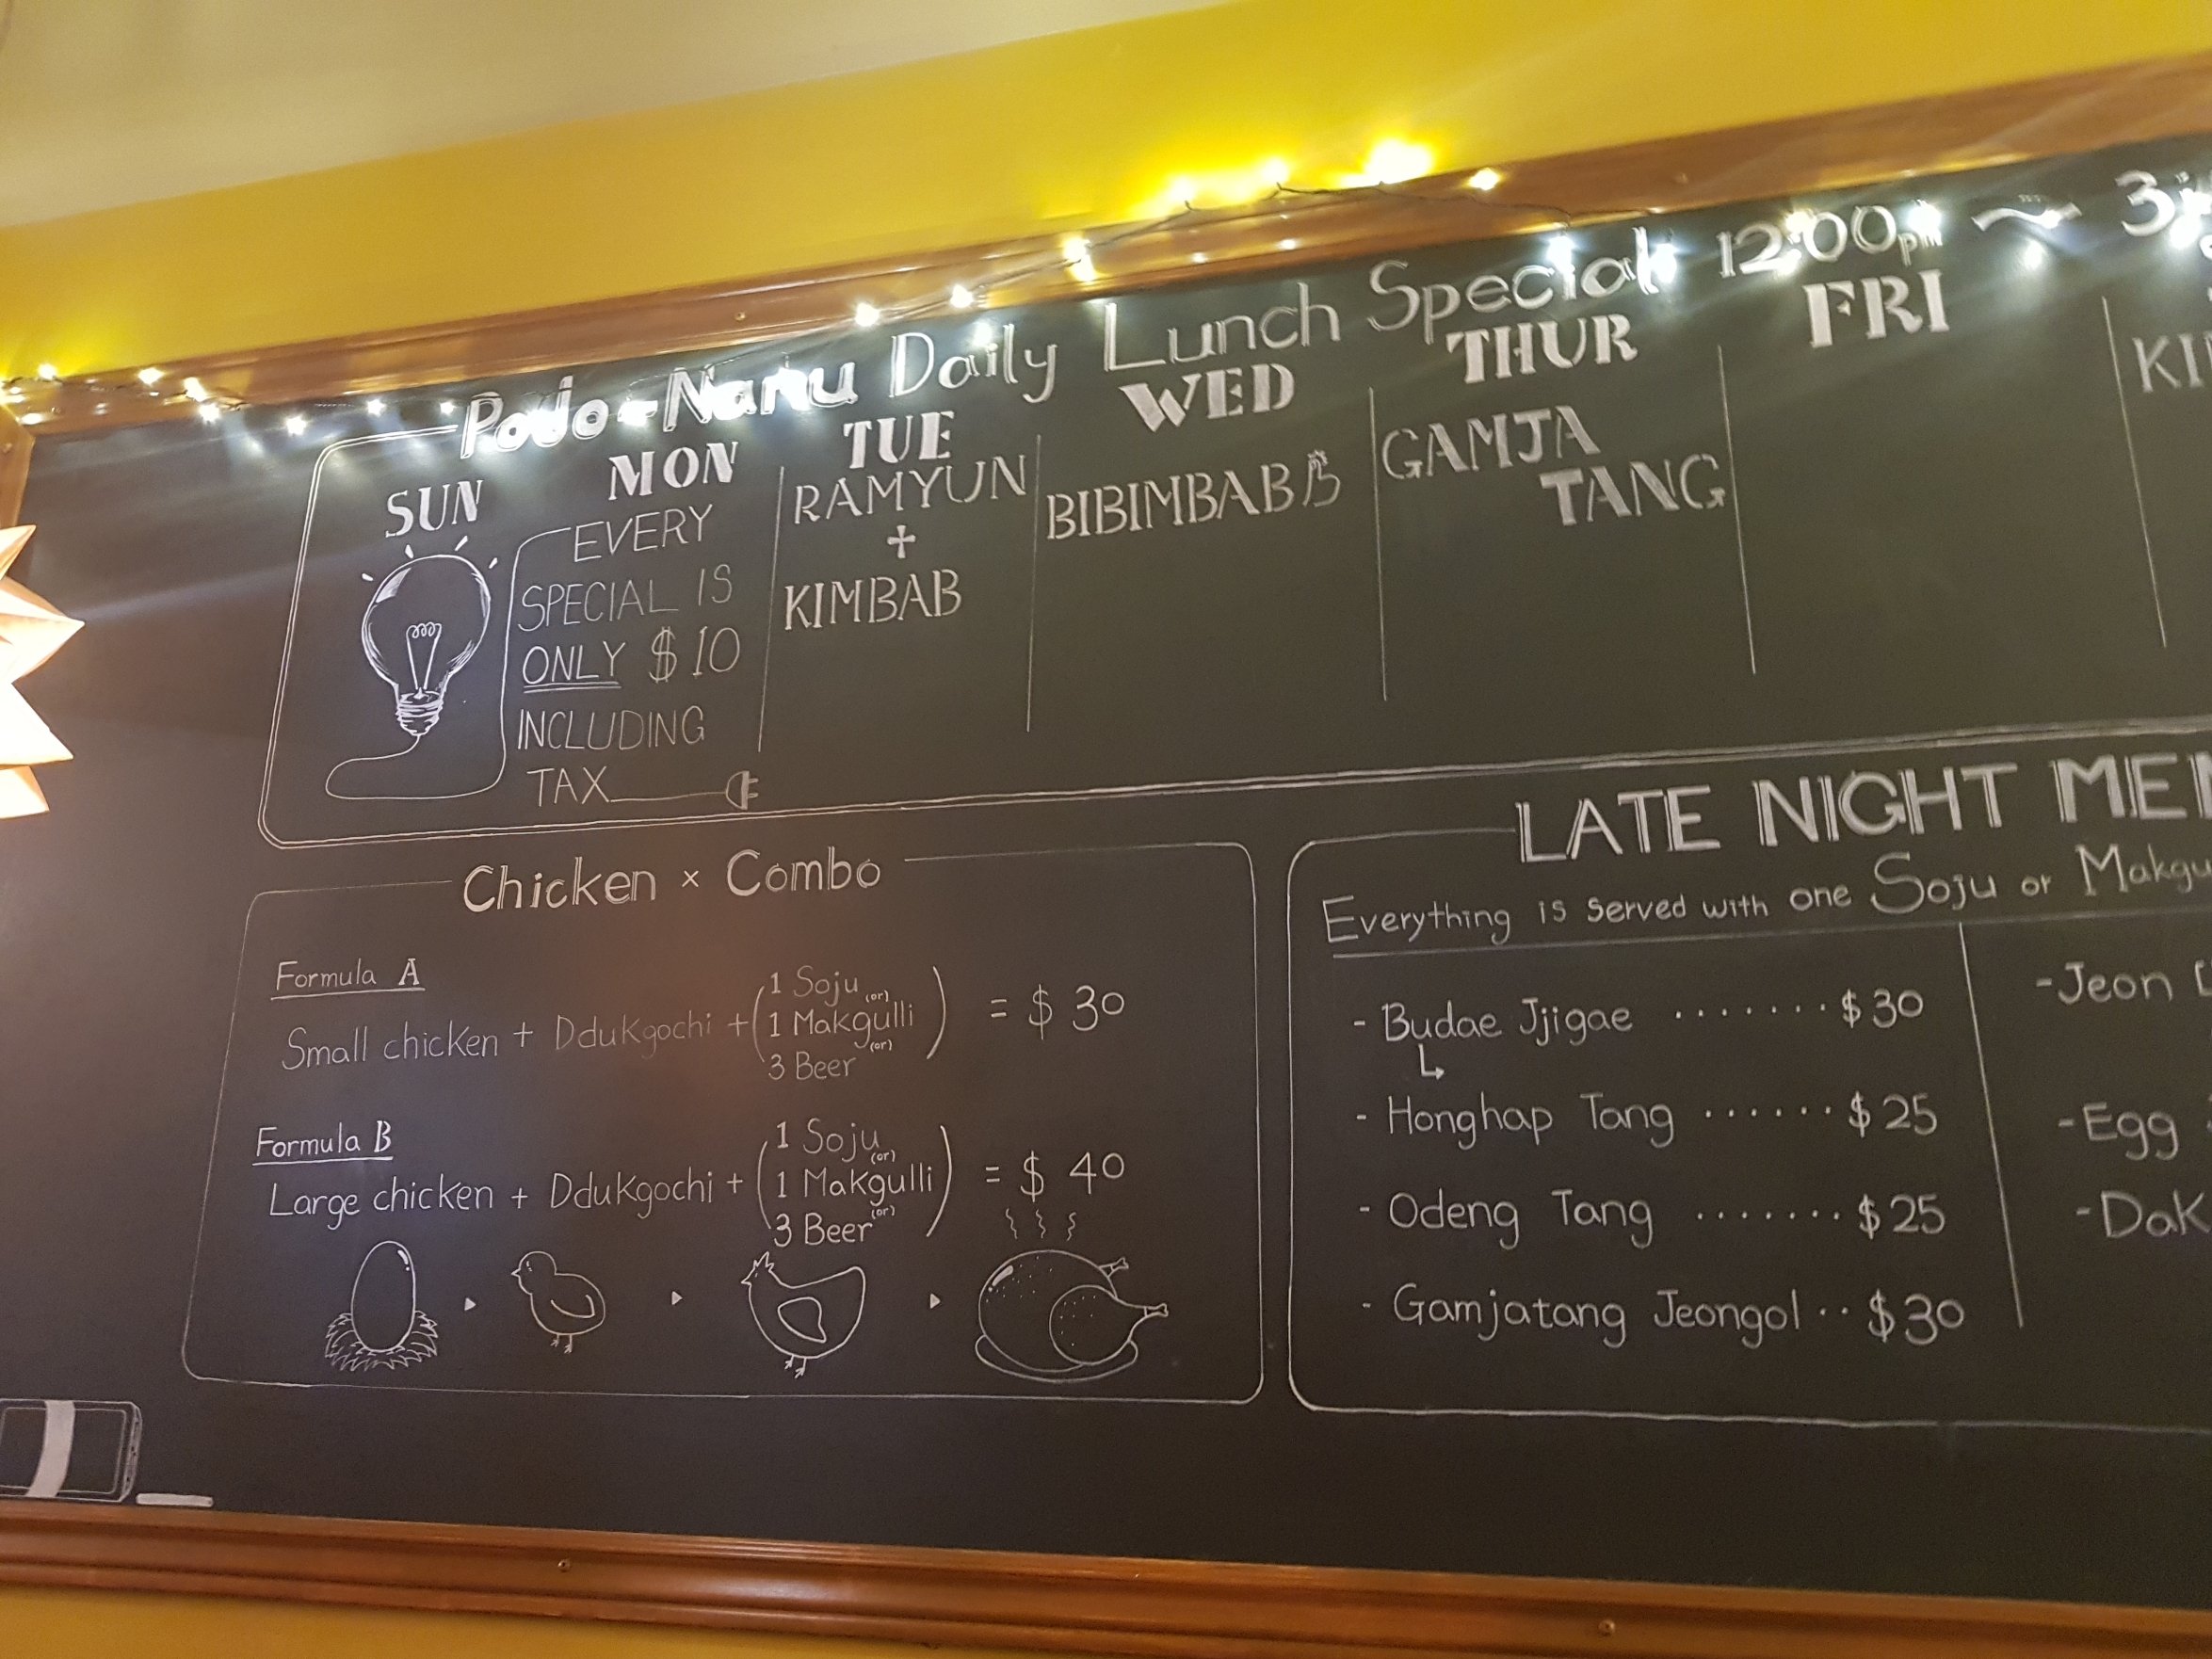 Podo-Namu Daily Lunch Special 12:00pm ~
SUN
MON
TUE
WED
THUR
FRI
EVERY
SPECIAL IS
ONLY $10
INCLUDING
TAX
RAMYUN
+
KIMBAB
BIBIMBAB
GAMJA
TANG
Chicken × Combo
Formula A
Small chicken + Ddukgochi + (1 Soju (or)
1 Makgulli (or)
3 Beer) = $30
Formula B
Large chicken + Ddukgochi + (1 Soju (or)
1 Makgulli (or)
3 Beer) = $40
LATE NIGHT
Everything is served with one Soju or
- Budae Jjigae ....... $30
- Honghap Tang ...... $25
- Odeng Tang ....... $25
- Gamjatang Jeongol .. $30
- Jeon
- Egg